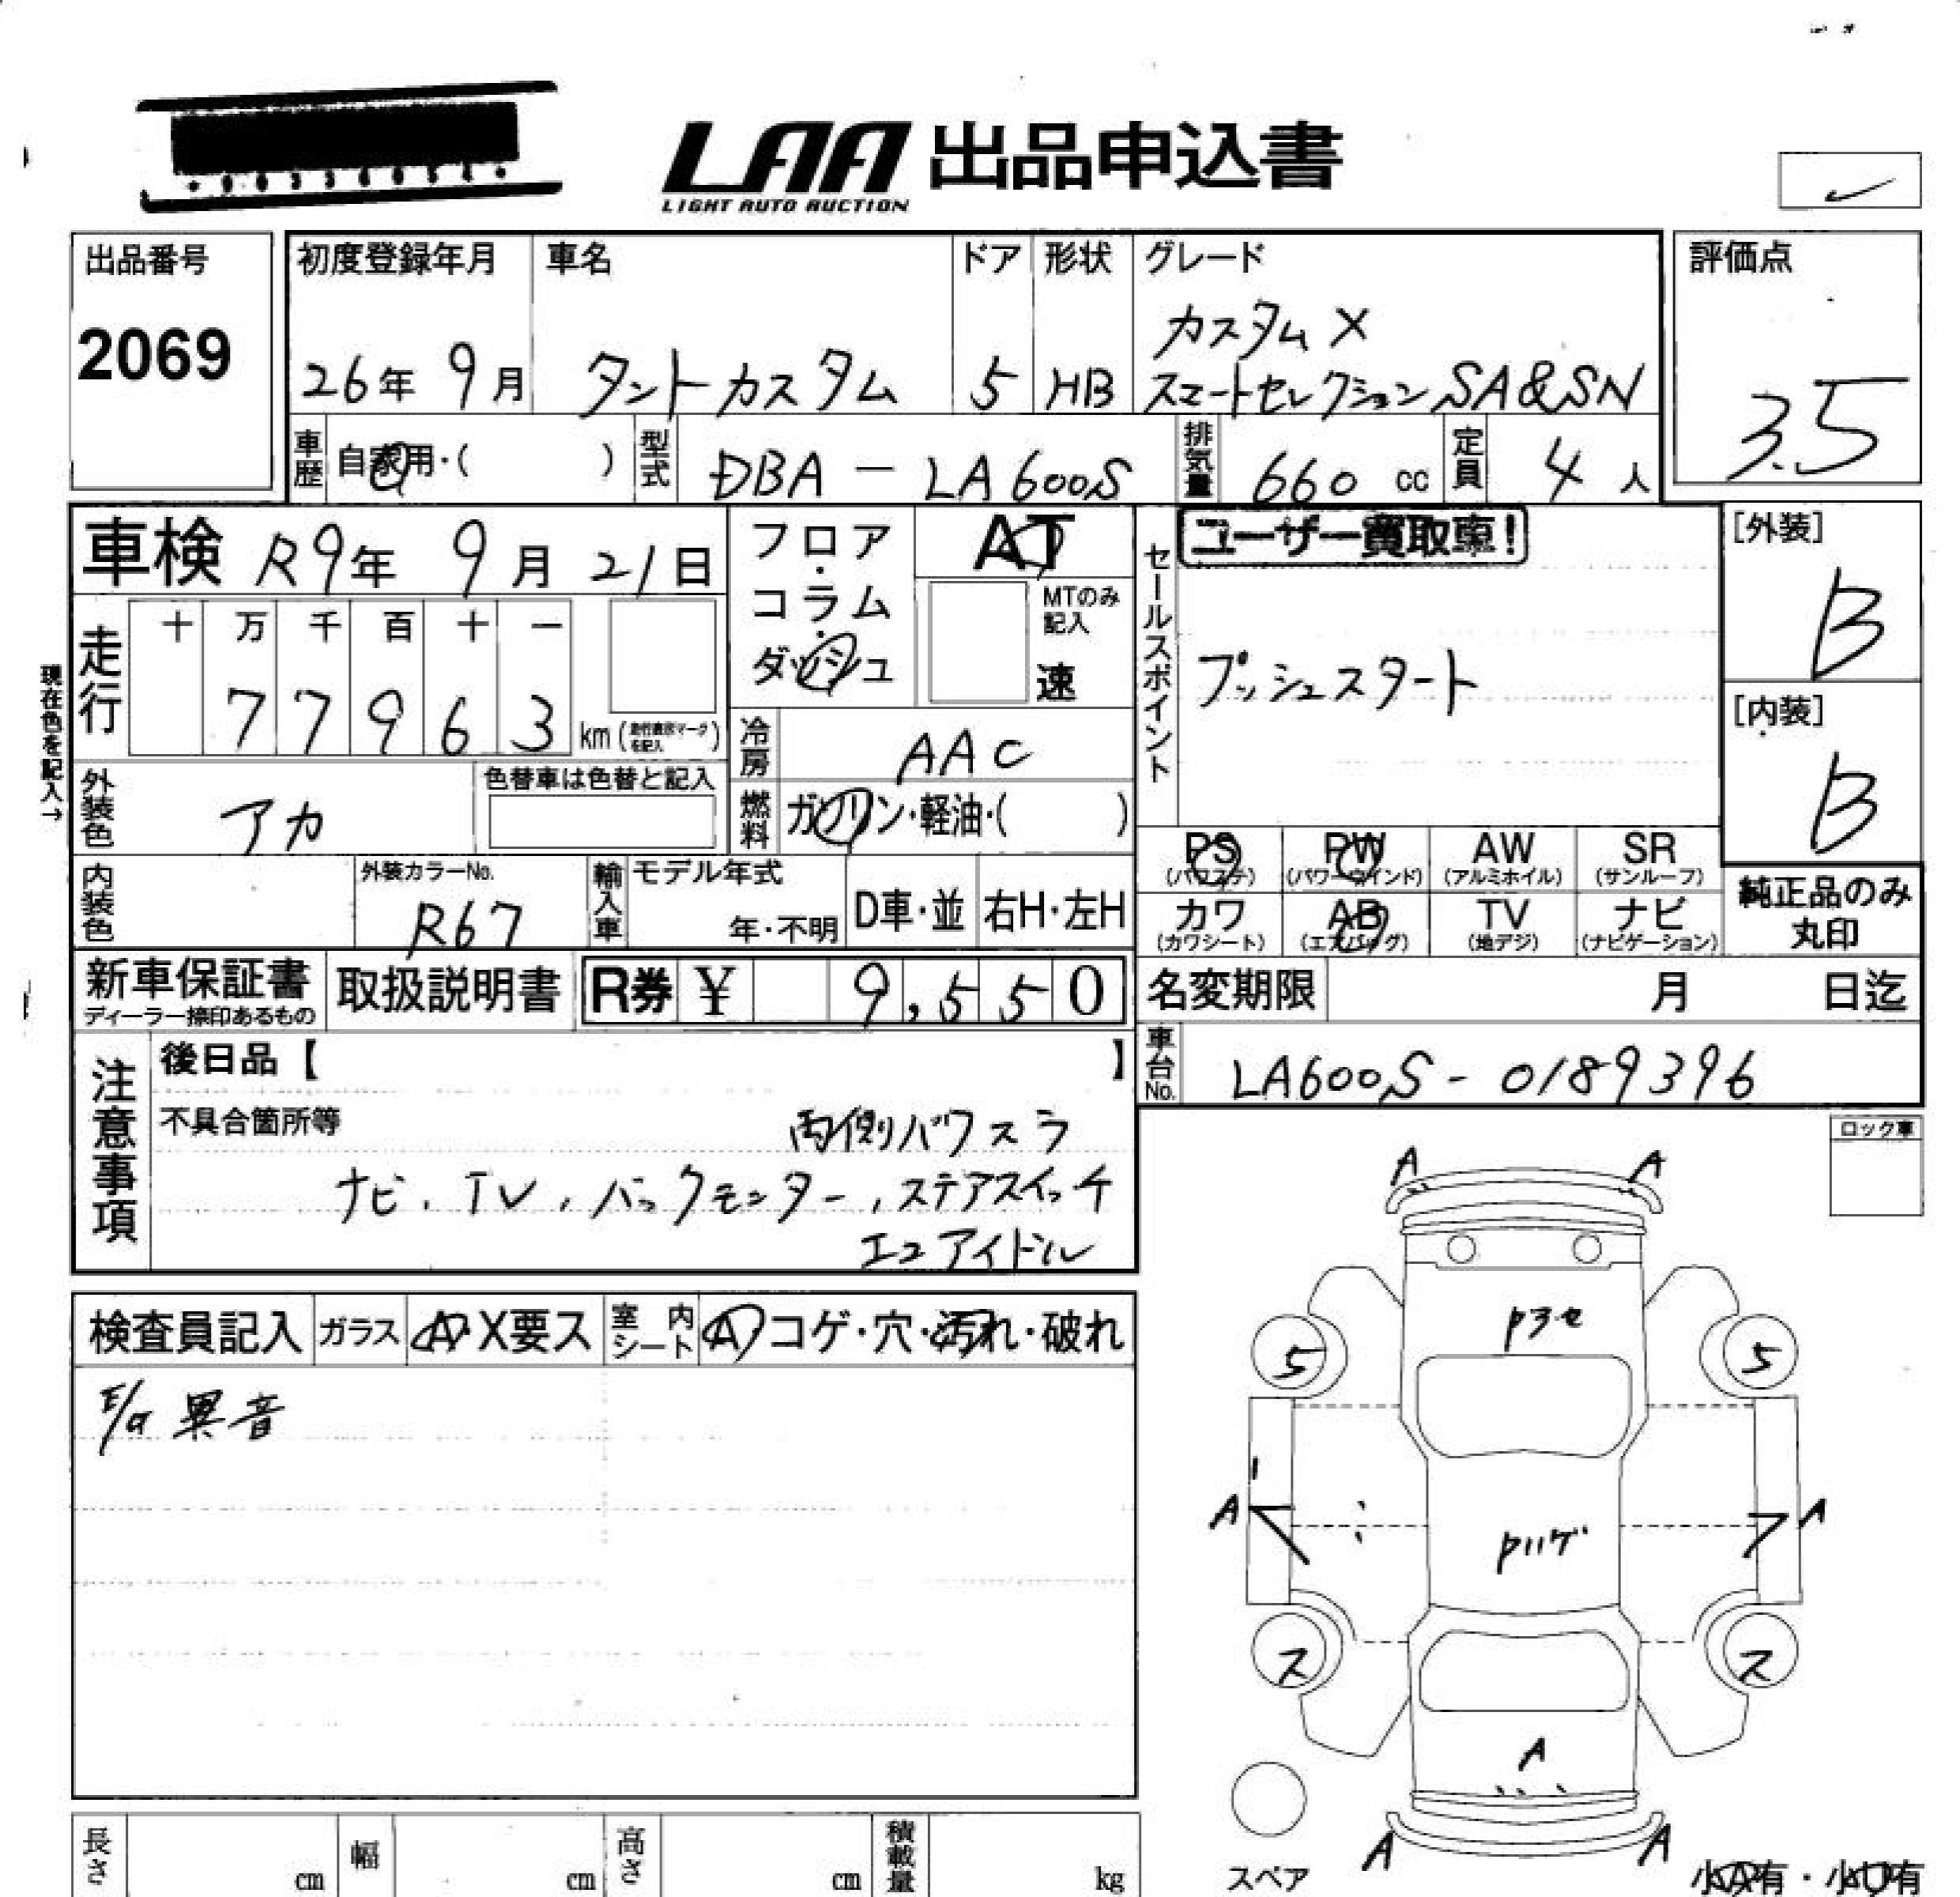 LAA 出品申込書
LIGHT AUTO AUCTION
出品番号
2069
初度登録年月
26年 9月
車名
タントカスタム
ドア
5
形状
HB
グレード
カスタムX
スマートセレクションSA&SN
評価点
3.5
車歴 自家用・( )
型式 DBA-LA600S
排気量 660 cc
定員 4人
車検 R9年 9月 21日
走行
十 万 千 百 十 一
7 7 9 6 3 km
現在色を記入→
外装色 アカ
色替車は色替と記入
内装色
外装カラーNo.
R67
フロア・コラム・ダッシュ
AT
MTのみ記入
速
冷房 AAC
燃料 ガソリン・軽油・( )
輸入車 モデル年式
年・不明
D車・並
右H・左H
セールスポイント
ユーザー買取車!
プッシュスタート
[外装]
B
[内装]
B
PS (パワステ)
PW (パワーウインド)
AW (アルミホイル)
SR (サンルーフ)
カワ (カワシート)
AB (エアバッグ)
TV (地デジ)
ナビ (ナビゲーション)
純正品のみ
丸印
新車保証書
ディーラー捺印あるもの
取扱説明書
R券 ¥ 9,550
名変期限 月 日迄
車台No. LA600S-0189396
注意事項
後日品【 】
不具合箇所等
両側パワスラ
ナビ、TV、バックモニター、ステアスイッチ
エコアイドル
ロック車
検査員記入
ガラス A・X要ス
室内シート A コゲ・穴・汚れ・破れ
E/g 異音
A A
5 5
A A
ス ス
A
A A
スペア
長さ cm
幅 cm
高さ cm
積載量 kg